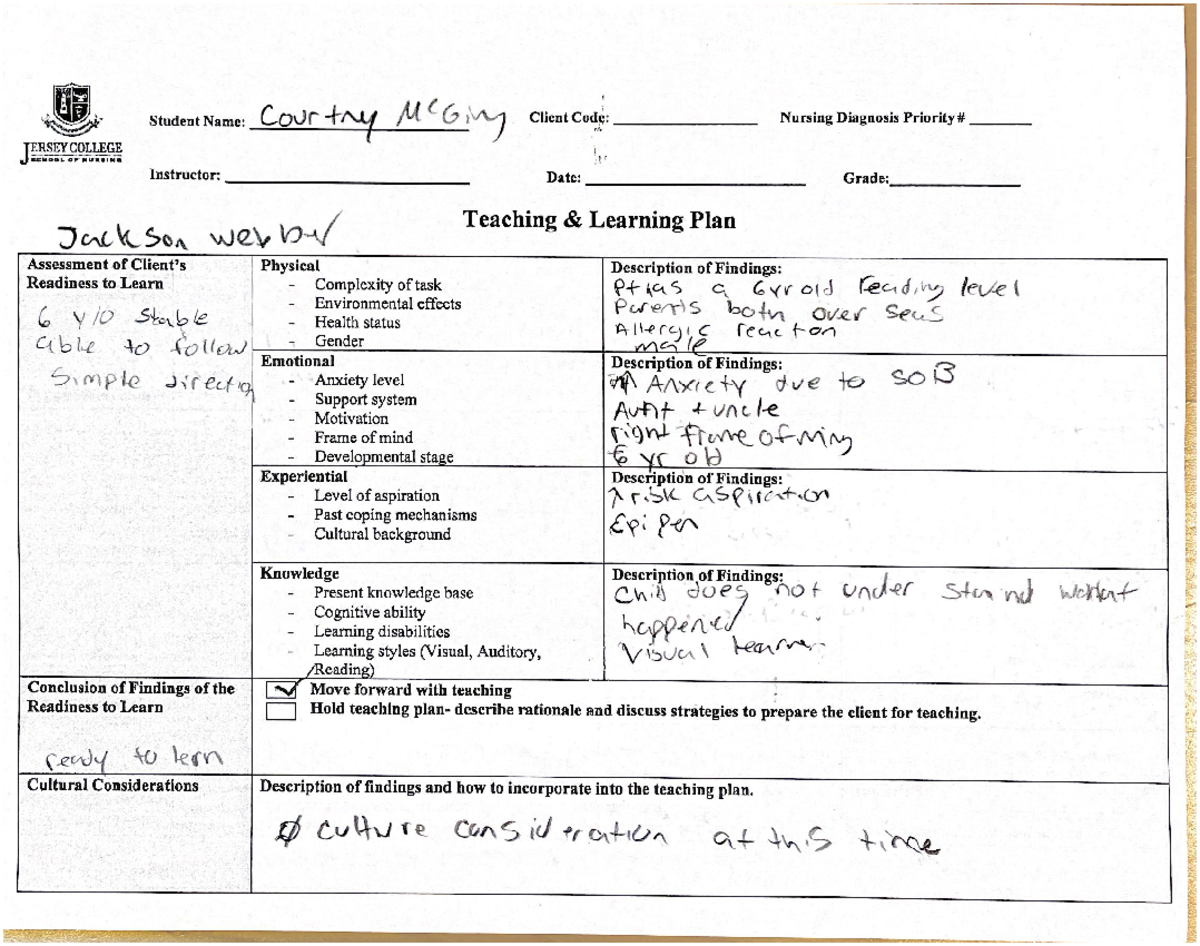 JERSEY COLLEGE
SCHOOL OF NURSING
Student Name: Courtney McGinty Client Code: Nursing Diagnosis Priority #
Instructor: Date: Grade:
Teaching & Learning Plan
Jackson webber
Assessment of Client's
Readiness to Learn
6 y/o stable
able to follow
simple direction
Physical
- Complexity of task
- Environmental effects
- Health status
- Gender
Description of Findings:
Pt has a 6yr old reading level
Parents both over seas
Allergic reaction
male
Emotional
- Anxiety level
- Support system
- Motivation
- Frame of mind
- Developmental stage
Description of Findings:
↑ Anxiety due to SOB
Aunt + uncle
right frame of mind
6 yr old
Experiential
- Level of aspiration
- Past coping mechanisms
- Cultural background
Description of Findings:
↑ risk aspiration
Epi Pen
Knowledge
- Present knowledge base
- Cognitive ability
- Learning disabilities
- Learning styles (Visual, Auditory,
/Reading)
Description of Findings:
Child does not under stand what
happened
Visual learner
Conclusion of Findings of the
Readiness to Learn
ready to lern
✓ Move forward with teaching
Hold teaching plan- describe rationale and discuss strategies to prepare the client for teaching.
Cultural Considerations
Description of findings and how to incorporate into the teaching plan.
Ø culture consideration at this time